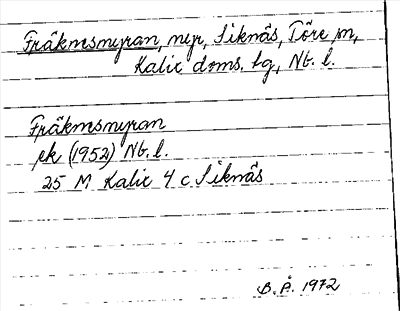 Fräkmsmyran, myr, Siknäs, Töre sn,
Kalix doms. lg, Nb. l.
Fräkmsmyran
ek (1952) Nb. l.
25 M Kalix 4 c Siknäs
B. Å. 1972